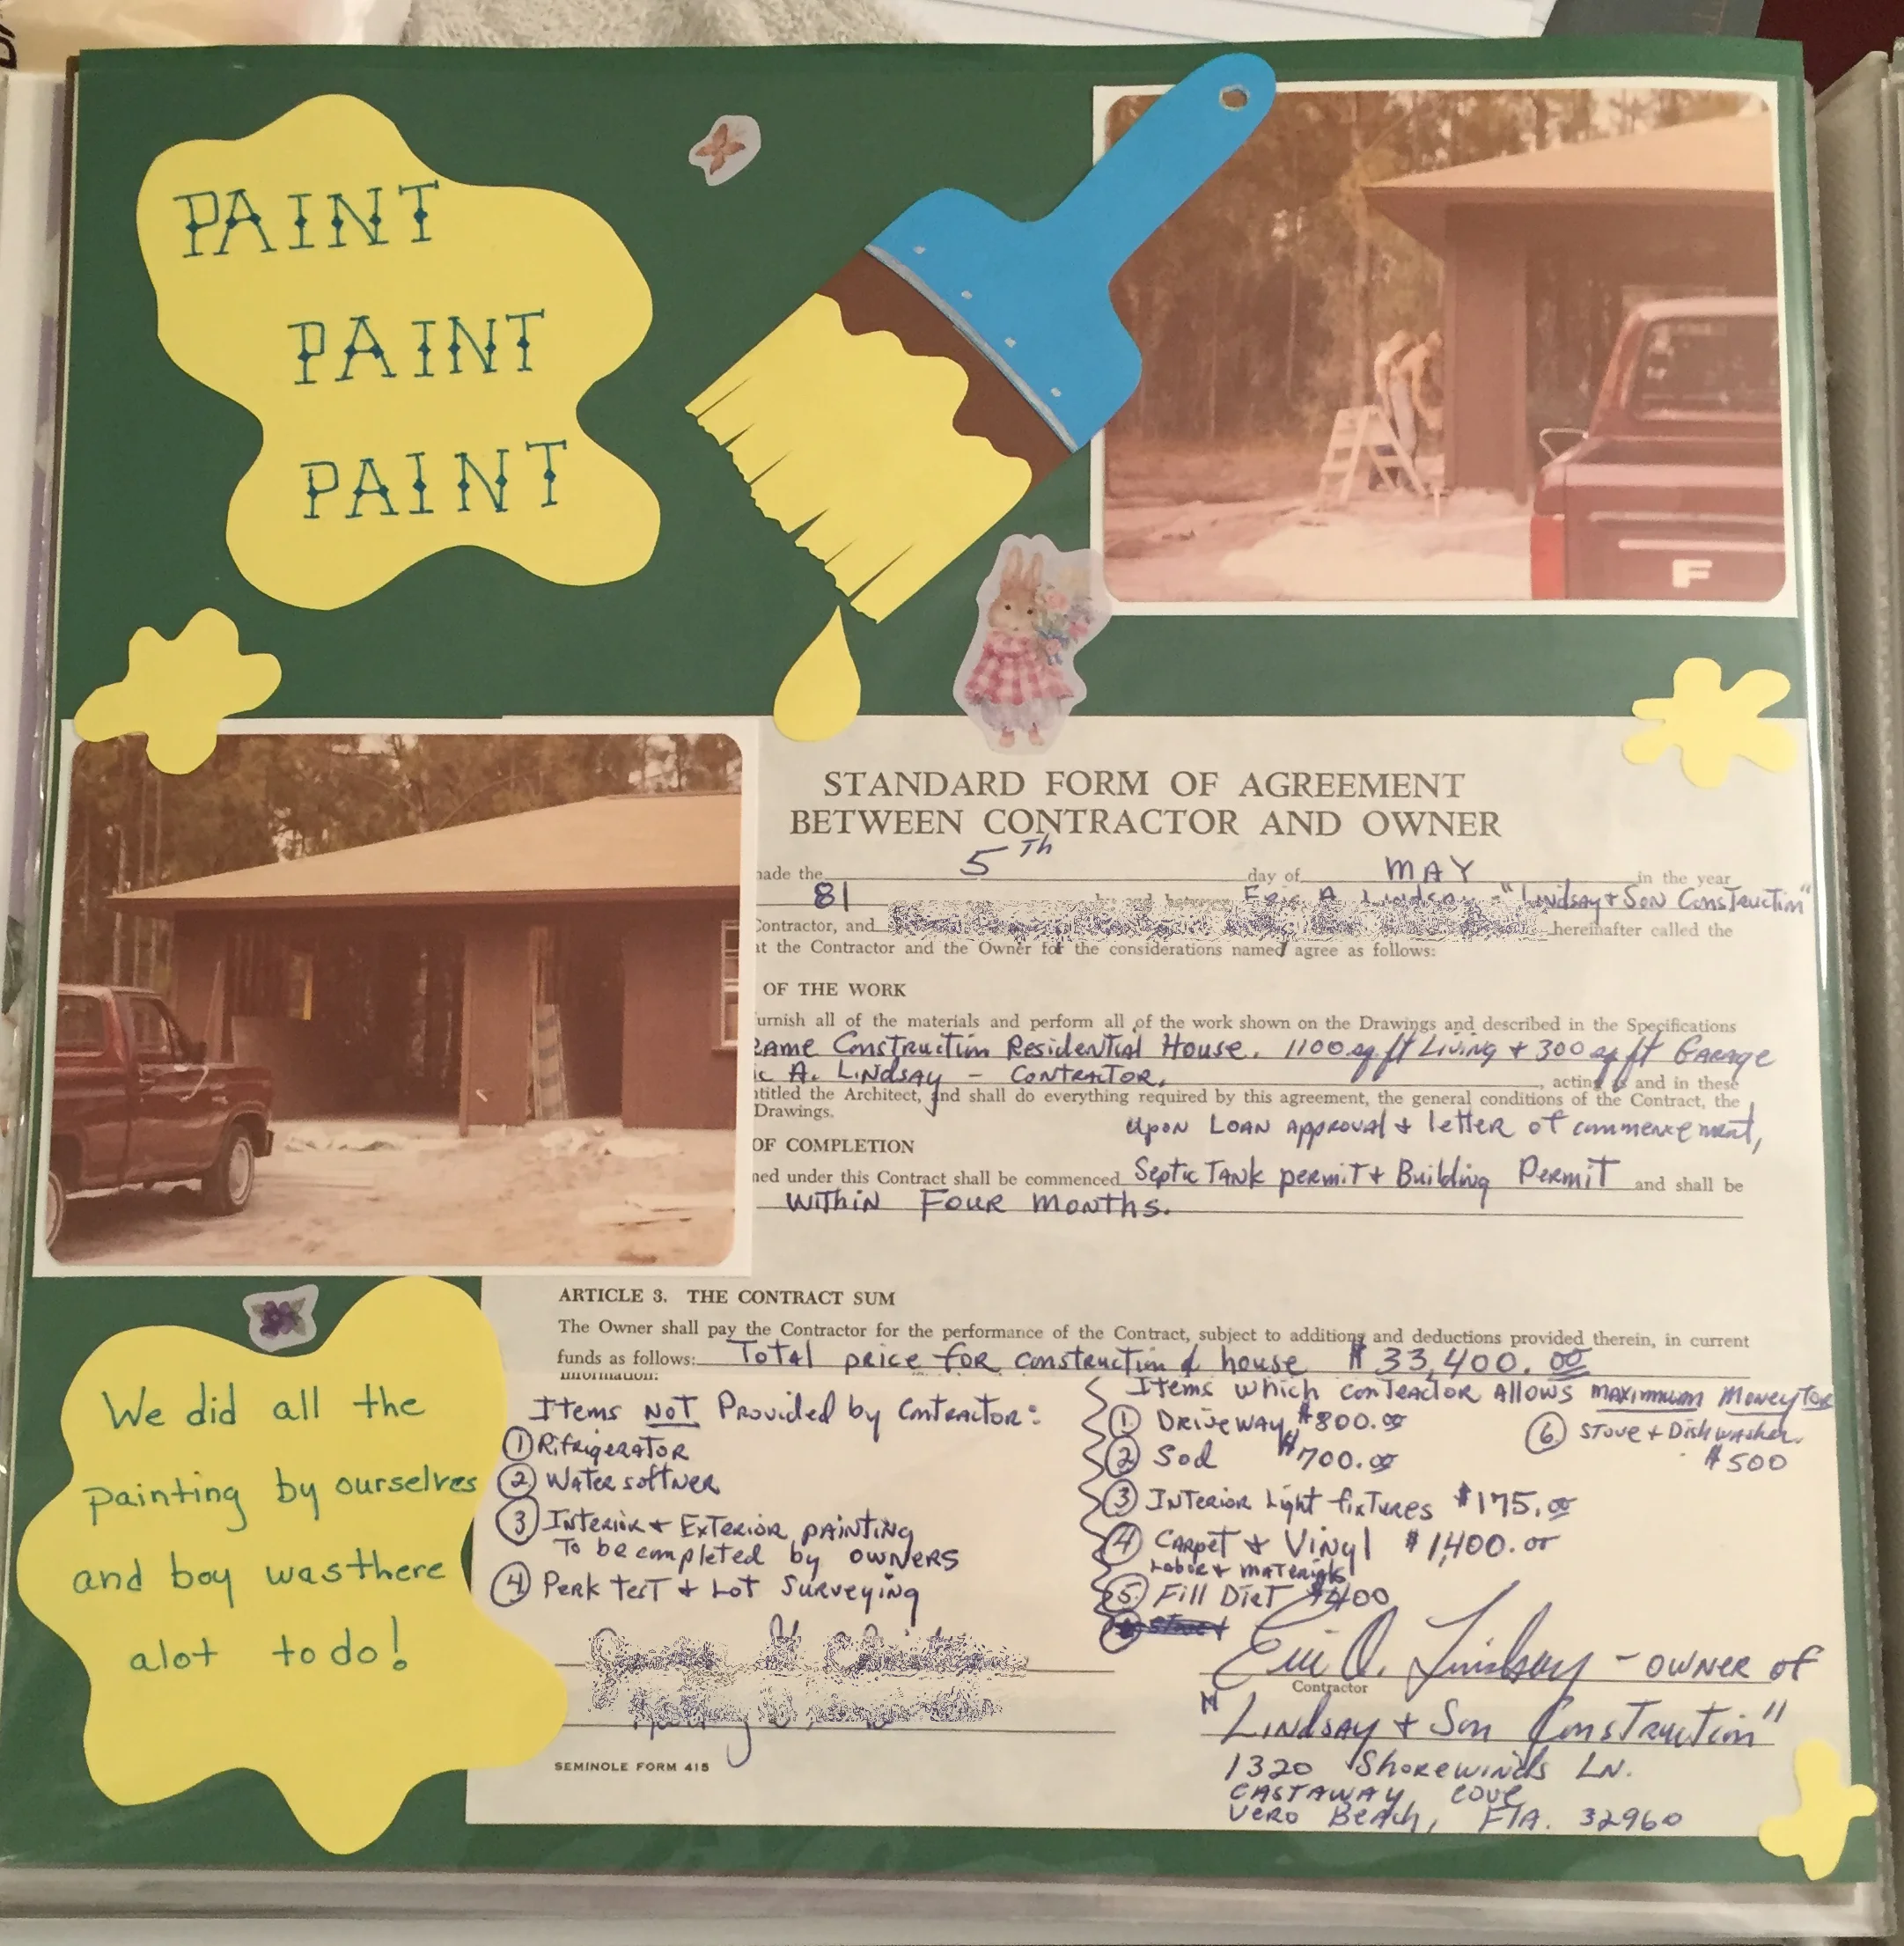 PAINT
PAINT
PAINT
F
STANDARD FORM OF AGREEMENT
BETWEEN CONTRACTOR AND OWNER
made the 5th day of MAY in the year
81 by and between Eric A Lindsay - "Lindsay & Son Construction"
Contractor, and hereinafter called the
at the Contractor and the Owner for the considerations named agree as follows:
OF THE WORK
urnish all of the materials and perform all of the work shown on the Drawings and described in the Specifications
rame Construction Residential House. 1100 sq. ft Living + 300 sq ft Garage
ic A. Lindsay - Contractor, acting as and in these
ntitled the Architect, and shall do everything required by this agreement, the general conditions of the Contract, the
Drawings.
upon Loan Approval & letter of commencement,
OF COMPLETION
med under this Contract shall be commenced Septic Tank permit & Building Permit and shall be
within Four months.
ARTICLE 3. THE CONTRACT SUM
The Owner shall pay the Contractor for the performance of the Contract, subject to additions and deductions provided therein, in current
funds as follows: Total price for construction of house $33,400.00
information:
Items NOT Provided by Contractor:
① Rifrigerator
② Water softner
③ Interior & Exterior painting
To be completed by owners
④ Perk test & Lot Surveying
Items which contractor Allows maximum Money for
① Driveway $800.00
② Sod $700.00
③ Interior Light fixtures $175.00
④ Carpet & Vinyl $1,400.00
Labor & materials
⑤ Fill Dirt $400
⑥ Stove & Dishwasher.
$500
We did all the
painting by ourselves
and boy was there
alot to do!
Eric A. Lindsay - owner of
Contractor
"Lindsay & Son Construction"
1320 Shorewinds LN.
Castaway Cove
Vero Beach, Fla. 32960
SEMINOLE FORM 415